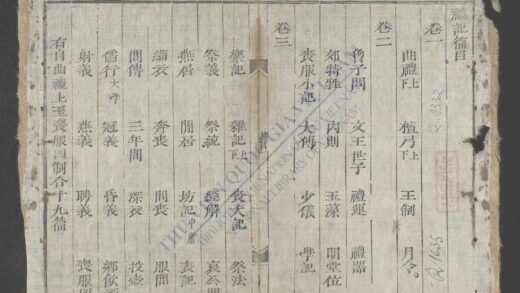 禮記篇目
卷一
曲禮上下 檀弓上下 王制 月令
卷二
曾子問 文王世子 禮運 禮器
郊特牲 內則 玉藻 明堂位
喪服小記 大傳 少儀 學記
卷三
樂記 雜記上下 喪大記 祭法
祭義 祭統 經解 哀公
燕居 閒居 坊記 中庸
緇衣 奔喪 問喪 服問
間傳 三年問 深衣 投壺
儒行 大學 冠義 昏義 鄉飲
射義 燕義 聘義 喪服四
右自曲禮上至喪服四制合十九篇
THƯ VIỆN QUỐC GIA VIỆT NAM
NATIONAL LIBRARY OF VIETNAM
R.1635